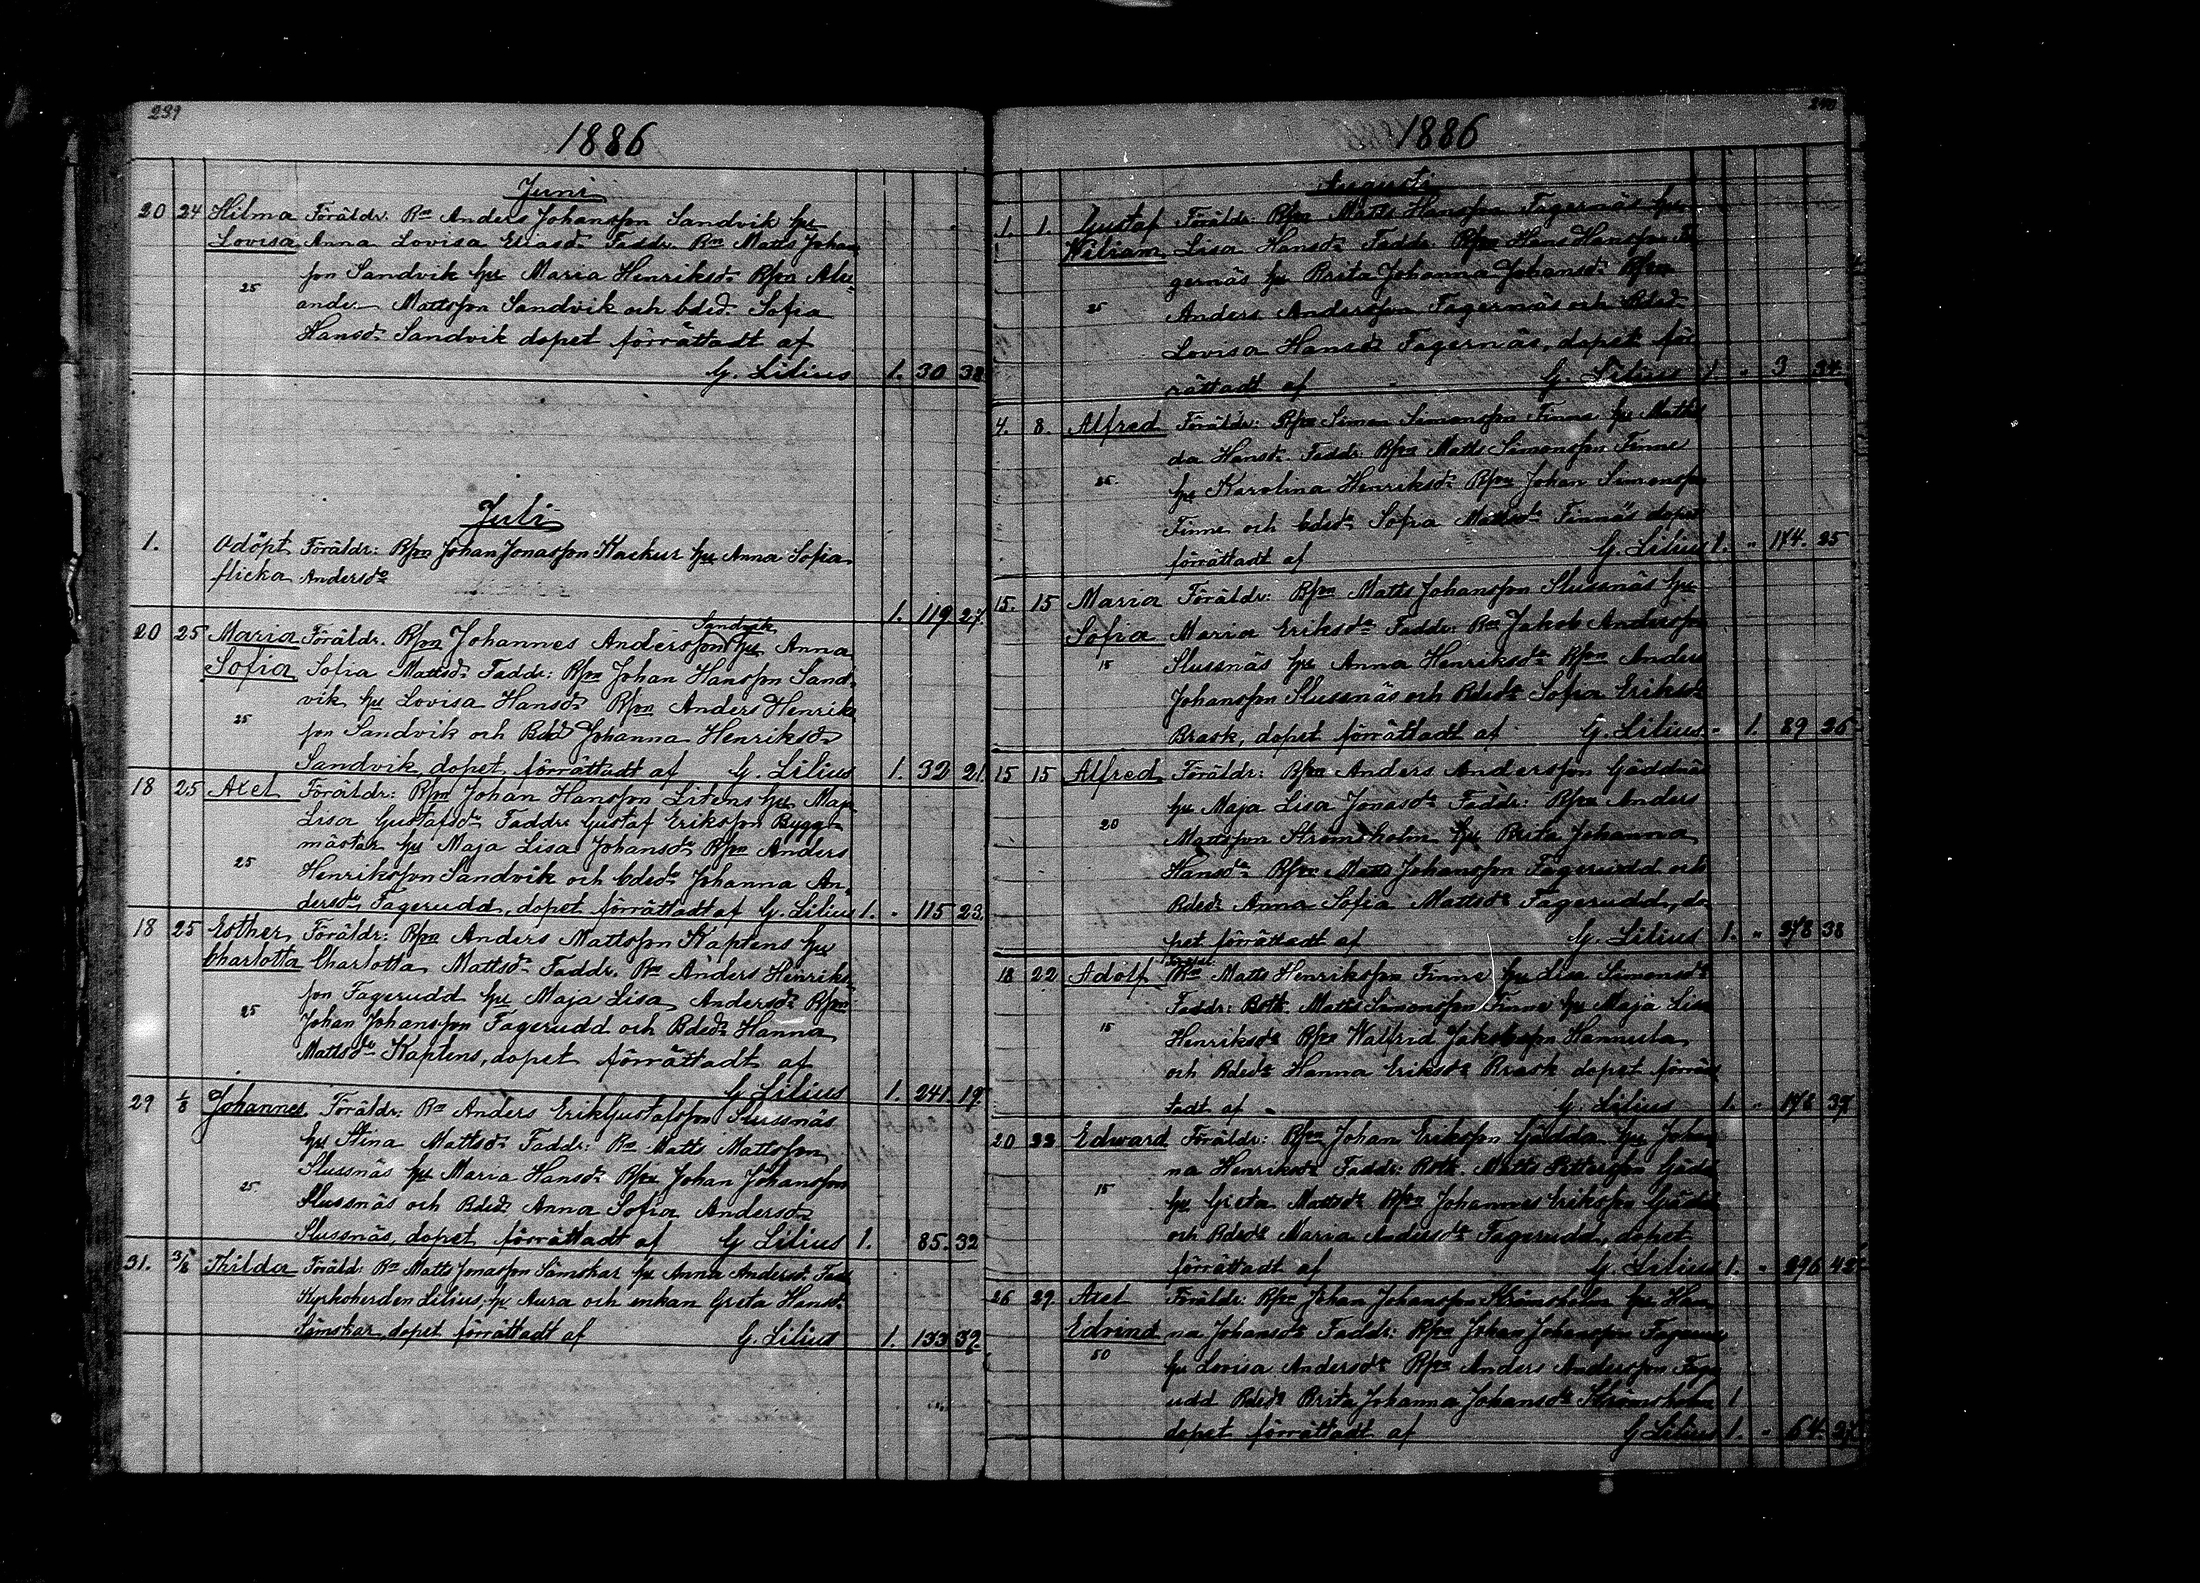 239
1886
Juni
20 24 Hilma Föräldr: Bn Anders Johansson Sandvik hu
Lovisa Anna Lovisa Fadd. Bn Matts Johan
son Sandvik hu Maria Henriksdr Bson Alex
25
ander Mattsson Sandvik och bdsd Sofia
Hansdr Sandvik dopet förrättadt af
G. Lilius 1. 30 38
Juli
1. Odöpt Föräldr: Bson Johan Jonasson Kackur hu Anna Sofia
flicka Andersdr
1. 119 27
Sandvik
20 25 Maria Föräldr. Bson Johannes Andersson hu Anna
Sofia Sofia Mattsdr Faddr: Bson Johan Hansson Sand
vik hu Lovisa Hansdr Bson Anders Henriks
25
son Sandvik och Bdsd Johanna Henriksdr
Sandvik, dopet förrättadt af G. Lilius 1. 32 21
18 25 Axel Föräldr: Bson Johan Hansson Litens hu Maja
Lisa Gustafsdr Faddr: Gustaf Eriksson Bygg-
mästar hu Maja Lisa Johansdr Bson Anders
25
Henriksson Sandvik och bdsdr Johanna An-
dersdr Fagerudd, dopet förrättadt af G. Lilius 1. " 115 23
18 25 Esther Föräldr: Bson Anders Mattsson Kaptens hu
Charlotta Charlotta Mattsdr Faddr. Bn Anders Henriks-
son Fagerudd hu Maja Lisa Andersdr Bson
25
Johan Johansson Fagerudd och Bdsdr Hanna
Mattsdr Kaptens, dopet förrättadt af
G Lilius 1. 241 19
29 1/8 Johannes Föräldr: Bn Anders Erik Gustafsson Slussnäs
hu Stina Mattsdr Faddr: Bn Matts Mattsson
Slussnäs hu Maria Hansdr Bson Johan Johansson
25
Slussnäs och Bdsdr Anna Sofia Andersdr
Slussnäs, dopet förrättadt af G Lilius 1. 85 32
31. 3/8 Thilda Föräld: Bn Matts Jonasson Sämskar hu Anna Andersdr Fadd
Kyrkoherden Lilius, hu Aura och enkan Greta Hansdr
Sämskar dopet förrättadt af G. Lilius 1. 133 32
240
1886
Augusti
1. 1. Gustaf Föräldr: Bson Matts Hansson Fagernäs hu
Wiliam Lisa Hansdr Faddr: Bson Hans Hansson Fa
gernäs hu Brita Johanna Johansdr Bson
25
Anders Andersson Fagernäs och Bdsdr
Lovisa Hansdr Fagernäs, dopet för
rättadt af G. Lilius 1 " 3 34
4. 8. Alfred Föräldr: Bson Simon Simonsson Finne hu Mathil
da Hansdr Faddr: Bson Matts Simonsson Finne
25
hu Karolina Henriksdr Bson Johan Simonsson
Finne och bdsdr Sofia Mattsdr Finnäs dopet
förrättadt af G. Lilius 1. " 174 25
15. 15 Maria Föräldr: Bson Matts Johansson Slussnäs hu
Sofia Maria Eriksdr Faddr: Bn Jakob Andersson
15
Slussnäs hu Anna Henriksdr Bson Anders
Johansson Slussnäs och Bdsdr Sofia Eriksdr
Brask, dopet förrättadt af G. Lilius " 1. 89 26
15 15 Alfred Föräldr: Bson Anders Andersson Gäddnäs
hu Maja Lisa Jonasdr Faddr: Bson Anders
20
Mattsson Strömsholm hu Brita Johanna
Hansdr Bson Matts Johansson Fagerudd och
Bdsdr Anna Sofia Mattsdr Fagerudd, do
pet förrättadt af G. Lilius 1. " 278 38
18 22 Adolf Bn Matts Henriksson Finne hu Lisa Simonsdr
Faddr: Both. Matts Simonsson Finne hu Maja Lisa
15
Henriksdr Bson Walfrid Jakobsson Hannula
och Bdsdr Hanna Eriksdr Brask dopet förrät
tadt af G. Lilius 1. " 178 37
20 22 Edward Föräldr: Bson Johan Eriksson Gädda hu Johan
na Henriksdr Faddr: Both. Matts Pettersson Gädd
15
hu Greta Mattsdr Bson Johannes Eriksson Gädda
och Bdsdr Maria Andersdr Fagerudd, dopet
förrättadt af G. Lilius 1. " 296 42
26 29 Axel Föräldr: Bson Johan Johansson Strömsholm hu Han
Edvind na Johansdr Faddr: Bson Johan Johansson
50
hu Lovisa Andersdr Bson Anders Andersson Fager
udd Bdsdr Brita Johanna Johansdr Strömsholm 1
dopet förrättadt af G Lilius 1. " 64. 27